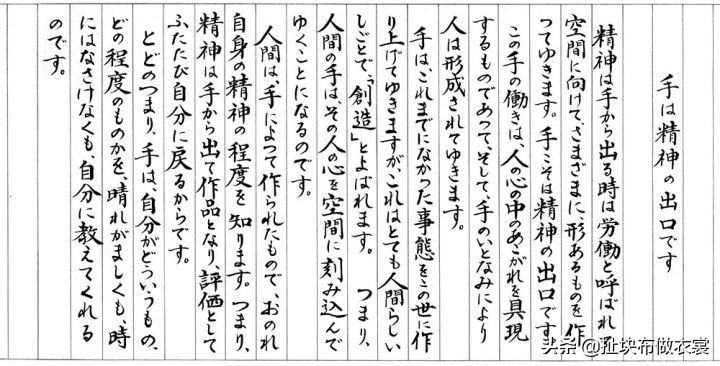 手は精神の出口です
精神は手から出る時は労働と呼ばれ
空間に向けて、さまざまに、形あるものを作
ってゆきます。手こそは精神の出口です。
この手の働きは、人の心の中のあこがれを具現
するものであって、そして、手のいとなみにより
人は形成されてゆきます。
手は、これまでになかった事態をこの世に作
り上げてゆきますが、これはとても人間らしい
しごとで、「創造」とよばれます。 つまり、
人間の手は、その人の心を空間に刻み込んで
ゆくことになるのです。
人間は、手によって作られたもので、おのれ
自身の精神の程度を知ります。つまり、
精神は手から出て作品となり、評価として
ふたたび自分に戻るからです。
とどのつまり、手は、自分がどういうもの、
どの程度のものかを、晴れがましくも、時
にはなさけなくも、自分に教えてくれる
のです。
头条 @扯块布做衣裳